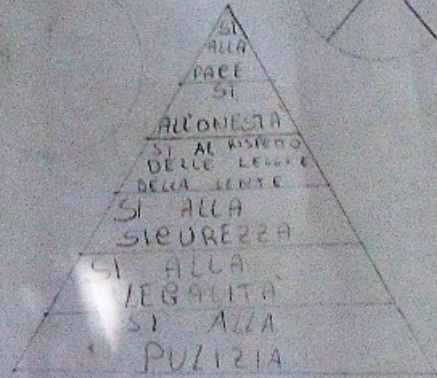 SI
ALLA
PACE
SI
ALL'ONESTÀ
SI AL RISPETTO
DELLE LEGGI E
DELLA GENTE
SI ALLA
SICUREZZA
SI ALLA
LEGALITÀ
SI ALLA
PULIZIA